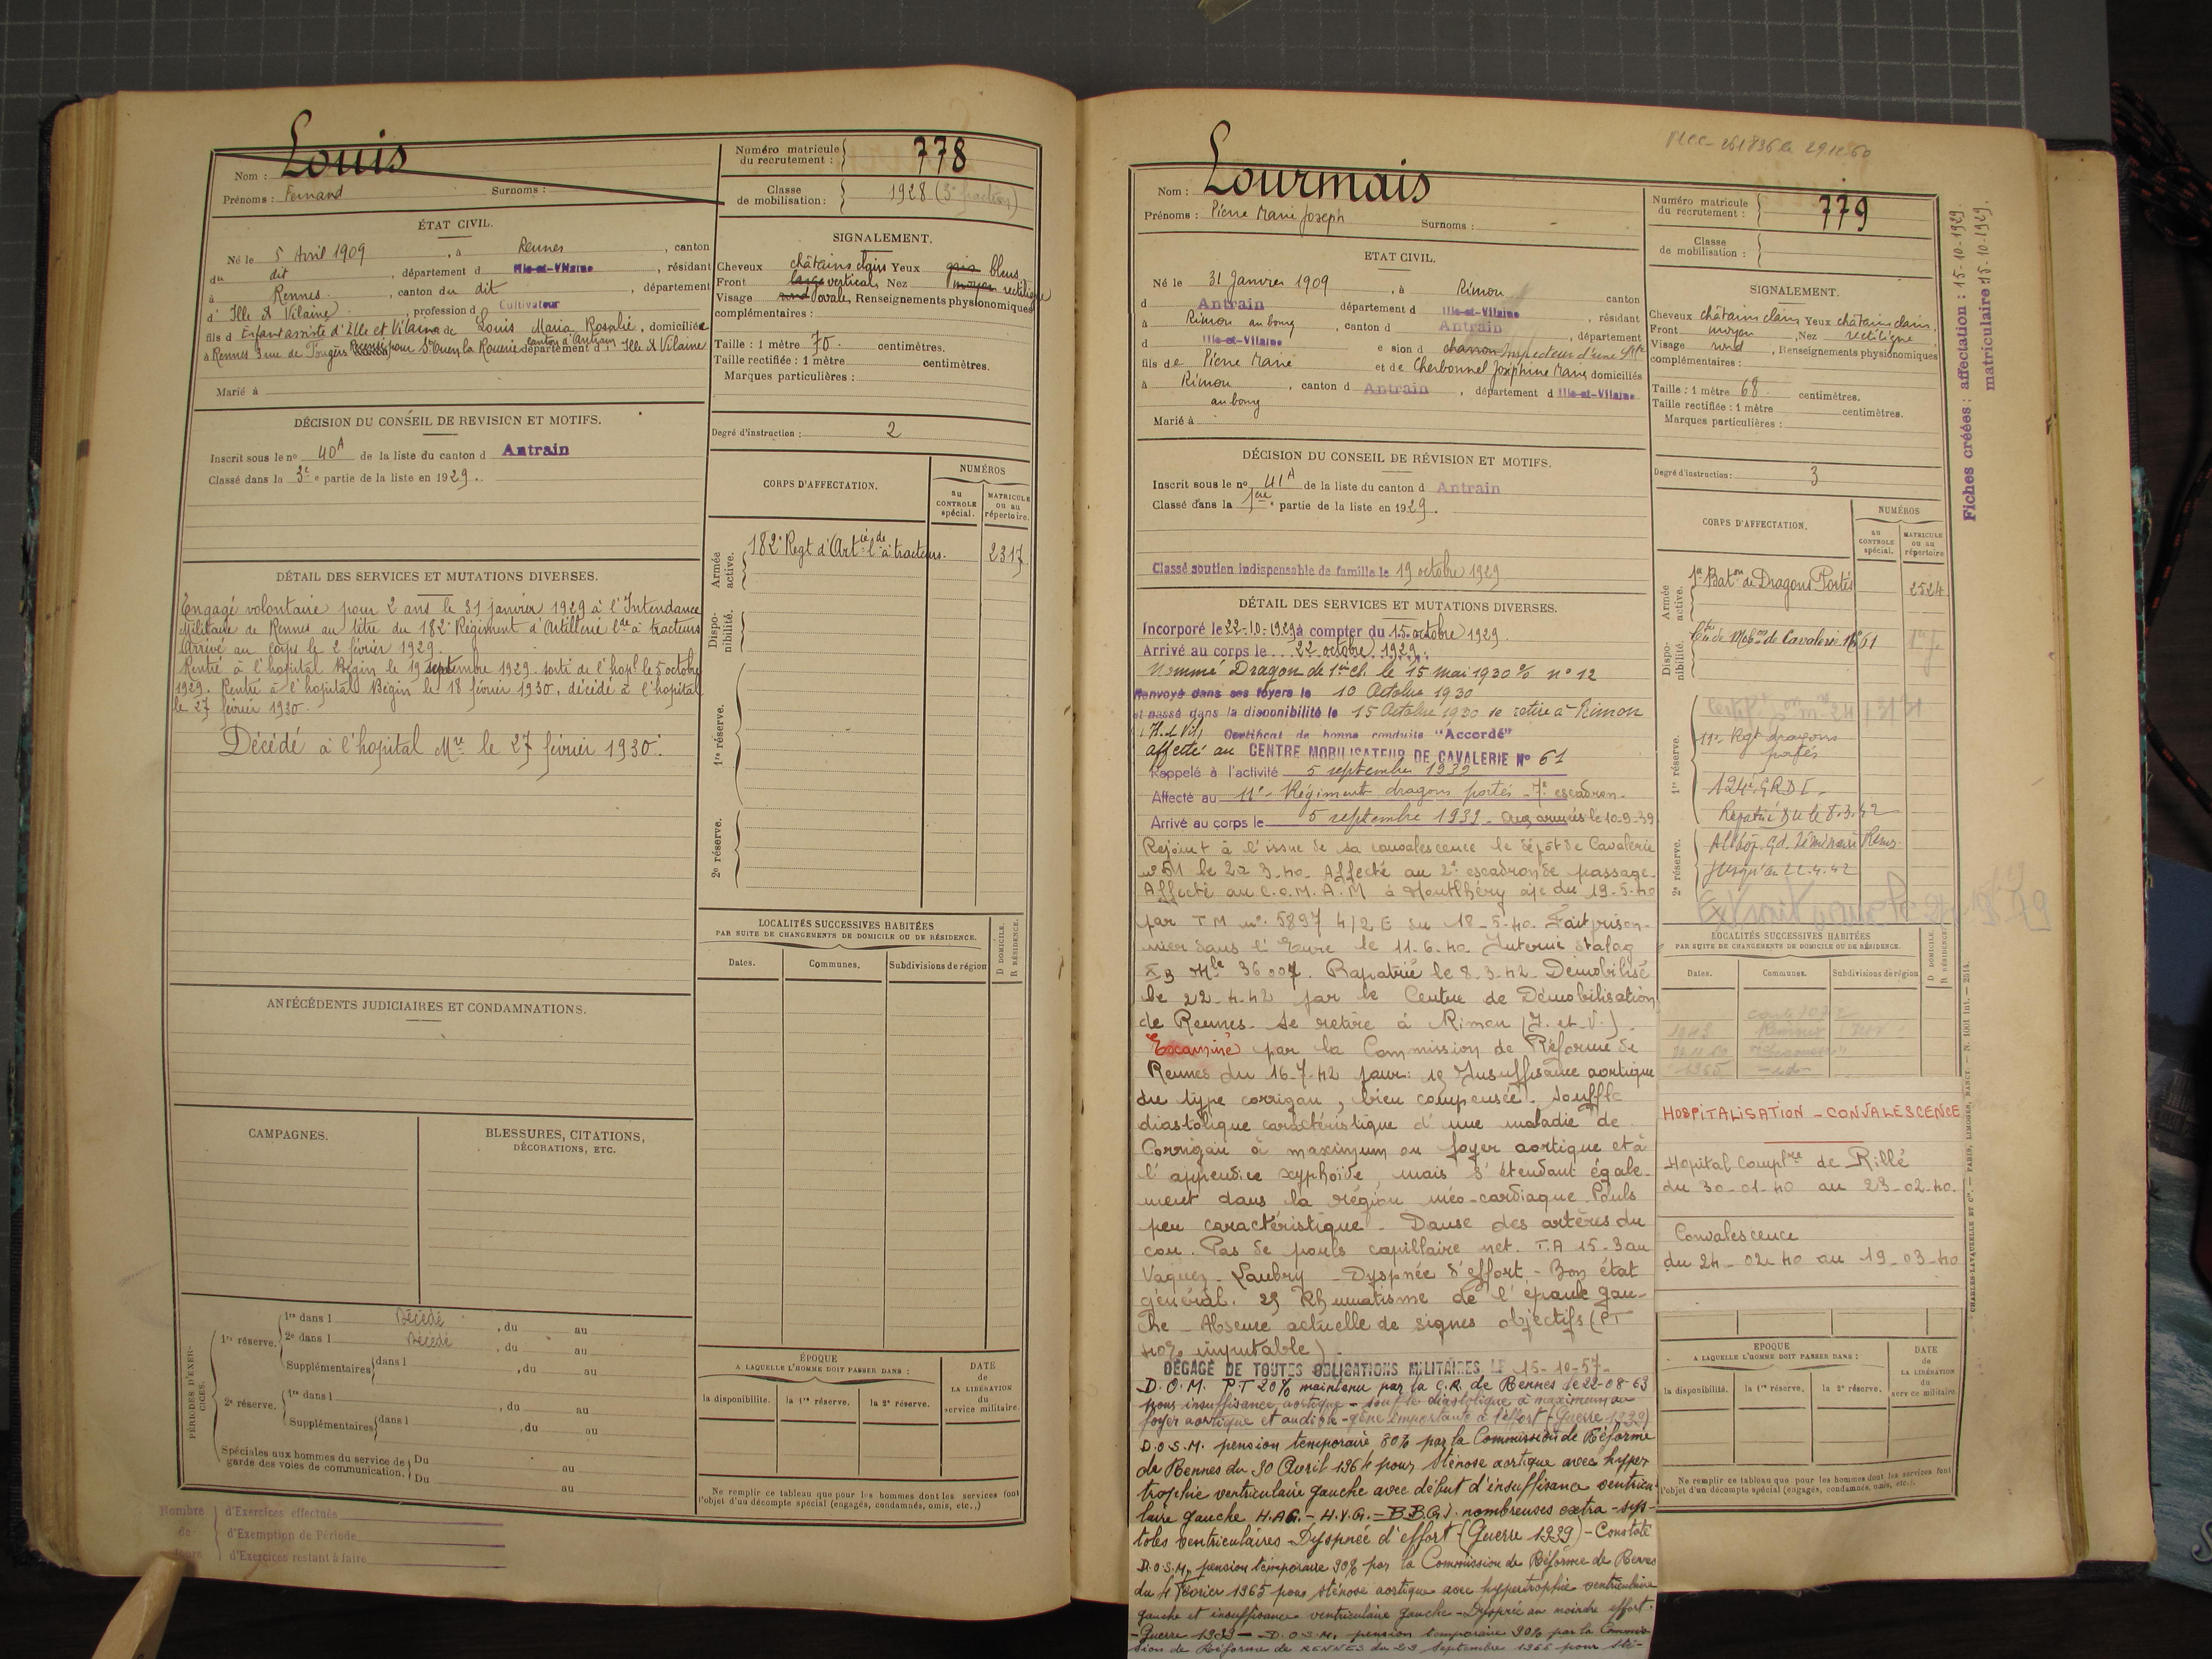 Nom : Louis
Prénoms : Fernand Surnoms :
Numéro matricule du recrutement : 778
Classe de mobilisation : 1928 (3e fraction)
ÉTAT CIVIL.
Né le 5 Avril 1909, à Rennes, canton
du dit, département d Ille-et-Vilaine, résidant
à Rennes, canton du dit, département
d' Ille & Vilaine, profession d Cultivateur
fils d Enfant assisté d'Ille et Vilaine de Louis Maria Rosalie, domiciliée
à Rennes 3 rue de Fougères pour St Ouen la Rouerie canton d'Antrain département d' Ille & Vilaine
Marié à
SIGNALEMENT.
Cheveux châtains clairs Yeux gris bleus
Front large vertical Nez moyen rectiligne
Visage rond ovale, Renseignements physionomiques
complémentaires :
Taille : 1 mètre 70 centimètres.
Taille rectifiée : 1 mètre centimètres.
Marques particulières :
Degré d'instruction : 2
DÉCISION DU CONSEIL DE REVISION ET MOTIFS.
Inscrit sous le no 40A de la liste du canton d Antrain
Classé dans la 3e partie de la liste en 1929.
CORPS D'AFFECTATION.
NUMÉROS
au CONTROLE spécial.
MATRICULE ou au répertoire.
Armée active.
182e Regt d'Artie lde à tracteurs. 2317
Disponibilité.
1re réserve.
2e réserve.
DÉTAIL DES SERVICES ET MUTATIONS DIVERSES.
Engagé volontaire pour 2 ans le 31 janvier 1929 à l'Intendance
Militaire de Rennes au titre du 182e Régiment d'Artillerie lde à tracteurs
Arrivé au corps le 2 février 1929.
Rentré à l'hopital Bégin le 19 septembre 1929. sorti de l'hopl le 5 octobre
1929. Rentré à l'hopital Bégin le 18 février 1930, décédé à l'hopital
le 27 février 1930.
Décédé à l'hopital Mre le 27 février 1930.
LOCALITÉS SUCCESSIVES HABITÉES
PAR SUITE DE CHANGEMENTS DE DOMICILE OU DE RÉSIDENCE.
D DOMICILE.
R RÉSIDENCE.
Dates. Communes. Subdivisions de région
ANTÉCÉDENTS JUDICIAIRES ET CONDAMNATIONS.
CAMPAGNES.
BLESSURES, CITATIONS,
DÉCORATIONS, ETC.
PÉRIODES D'EXERCICES.
1re réserve. 1re dans l Décédé, du au
2e dans l Décédé, du au
Supplémentaires dans l, du au
2e réserve. 1re dans l, du au
Supplémentaires dans l, du au
Spéciales aux hommes du service de garde des voies de communication. Du au
Du au
ÉPOQUE
A LAQUELLE L'HOMME DOIT PASSER DANS :
DATE de LA LIBÉRATION du service militaire.
la disponibilité. la 1re réserve. la 2e réserve.
Ne remplir ce tableau que pour les hommes dont les services font
l'objet d'un décompte spécial (engagés, condamnés, omis, etc.,)
Nombre de jours
d'Exercices effectués
d'Exemption de Période
d'Exercices restant à faire
Nom : Lourmais
Prénoms : Pierre Marie Joseph Surnoms : -
Numéro matricule du recrutement : 779
Classe de mobilisation :
Fiches créées : affectation : 15-10-1929.
matriculaire : 15-10-1929.
ETAT CIVIL.
Né le 31 Janvier 1909, à Rimou canton
d Antrain département d Ille-et-Vilaine, résidant
à Rimou au bourg, canton d Antrain, département
d Ille-et-Vilaine
charron Inspecteur d'une Sté
fils de Pierre Marie et de Cherbonnel Joséphine Marie domiciliés
à Rimou au bourg, canton d Antrain, département d Ille-et-Vilaine
Marié à
SIGNALEMENT.
Cheveux châtains clairs Yeux châtains clairs,
Front moyen, Nez rectiligne
Visage rond, Renseignements physionomiques
complémentaires :
Taille : 1 mètre 68 centimètres.
Taille rectifiée : 1 mètre centimètres.
Marques particulières :
Degré d'instruction : 3
DÉCISION DU CONSEIL DE RÉVISION ET MOTIFS.
Inscrit sous le no 41A de la liste du canton d Antrain
Classé dans la 1ère partie de la liste en 1929.
Classé soutien indispensable de famille le 19 octobre 1929
CORPS D'AFFECTATION.
NUMÉROS
au CONTROLE spécial.
MATRICULE ou au répertoire
Armée active.
1er Baton de Dragons Portés 2524
Disponibilité.
Ctre de Mobon de Cavalerie No 61
1re réserve.
11e Rgt dragons
portés
124e G.R.D.I.
Rapatrié DU le 8.3.42
2e réserve.
jusqu'au 22.4.42
DÉTAIL DES SERVICES ET MUTATIONS DIVERSES.
Incorporé le 22-10-1929 à compter du 15 octobre 1929.
Arrivé au corps le 22 octobre 1929.
Nommé Dragon de 1re Cl. le 15 mai 1930 o/ no 12
Renvoyé dans ses foyers le 10 Octobre 1930
et passé dans la disponibilité le 15 Octobre 1930 se retire à Rimou
I. & Vil. Certificat de bonne conduite "Accordé"
affecté au CENTRE MOBILISATEUR DE CAVALERIE No 61
Rappelé à l'activité 5 septembre 1939
Affecté au 11e Régiment dragons portés - 7e escadron
Arrivé au corps le 5 septembre 1939 - Aux armées le 10-9-39
Rejoint à l'issue de sa convalescence le dépôt de Cavalerie
no 51 le 20.3.40. Affecté au 2e escadron de passage.
Affecté au C.O.M.A.M à Montlhéry àje du 19-5-40
par T.M no 5897 4/2 E du 18-5-40. Fait prison-
nier dans l'Eure le 11.6.40. Interné Stalag
XB Mle 36007. Rapatrié le 8.3.42. Démobilisé
le 22-4-42 par le Centre de Démobilisation
de Rennes. Se retire à Rimou (I. et V.).
Examiné par la Commission de Réforme de
Rennes du 16-7-42 pour: 1º Insuffisance aortique
du type corrigan, bien compensée. Souffle
diastolique caractéristique d'une maladie de
Corrigan à maximum au foyer aortique et à
l'appendice xyphoïde, mais s'étendant égale-
ment dans la région méo-cardiaque. Pouls
peu caractéristique. Danse des artères du
cou. Pas de pouls capillaire net. T.A 15-3 au
Vaquez - Laubry - Dyspnée d'effort - Bon état
général. 2º Rhumatisme de l'épaule gau-
che - Absence actuelle de signes objectifs (PT
40% imputable).
DÉGAGÉ DE TOUTES OBLIGATIONS MILITAIRES LE 15-10-57
D.O.M. PT 20% maintenu par la C.R. de Rennes le 22-08-63
pour insuffisance aortique - souffle diastolique à maximum au
foyer aortique et audible - gêne importante à l'effort (Guerre 1939)
D.O.S.M. pension temporaire 80% par la Commission de Réforme
de Rennes du 30 Avril 1964 pour sténose aortique avec hyper
trophie ventriculaire gauche avec début d'insuffisance ventricu-
laire gauche H.A.G. - H.V.G. - B.B.G.). nombreuses extra-sys-
toles ventriculaires - Dyspnée d'effort (Guerre 1939) - Constaté
D.O.S.M. pension temporaire 90% par la Commission de Réforme de Rennes
du 4 Février 1965 pour sténose aortique avec hypertrophie ventriculaire
gauche et insuffisance ventriculaire gauche - Dyspnée au moindre effort.
- Guerre 1939 - D.O.S.M. pension temporaire 90% par la Commis-
sion de Réforme de RENNES du 29 Septembre 1966 pour sté-
LOCALITÉS SUCCESSIVES HABITÉES
PAR SUITE DE CHANGEMENTS DE DOMICILE OU DE RÉSIDENCE.
D DOMICILE
R RÉSIDENCE
Dates. Communes. Subdivisions de région
1965 - id -
HOSPITALISATION - CONVALESCENCE
Hopital Complre de Rillé
du 30-01-40 au 23-02-40.
Convalescence
du 24-02-40 au 19-03-40
EPOQUE
A LAQUELLE L'HOMME DOIT PASSER DANS :
DATE de LA LIBÉRATION du service militaire
la disponibilité. la 1re réserve. la 2e réserve.
Ne remplir ce tableau que pour les hommes dont les services font
l'objet d'un décompte spécial (engagés, condamnés, omis, etc.).
CHARLES-LAVAUZELLE ET Cie. — PARIS, LIMOGES, NANCY. — N. 1001 Int. — 2514.